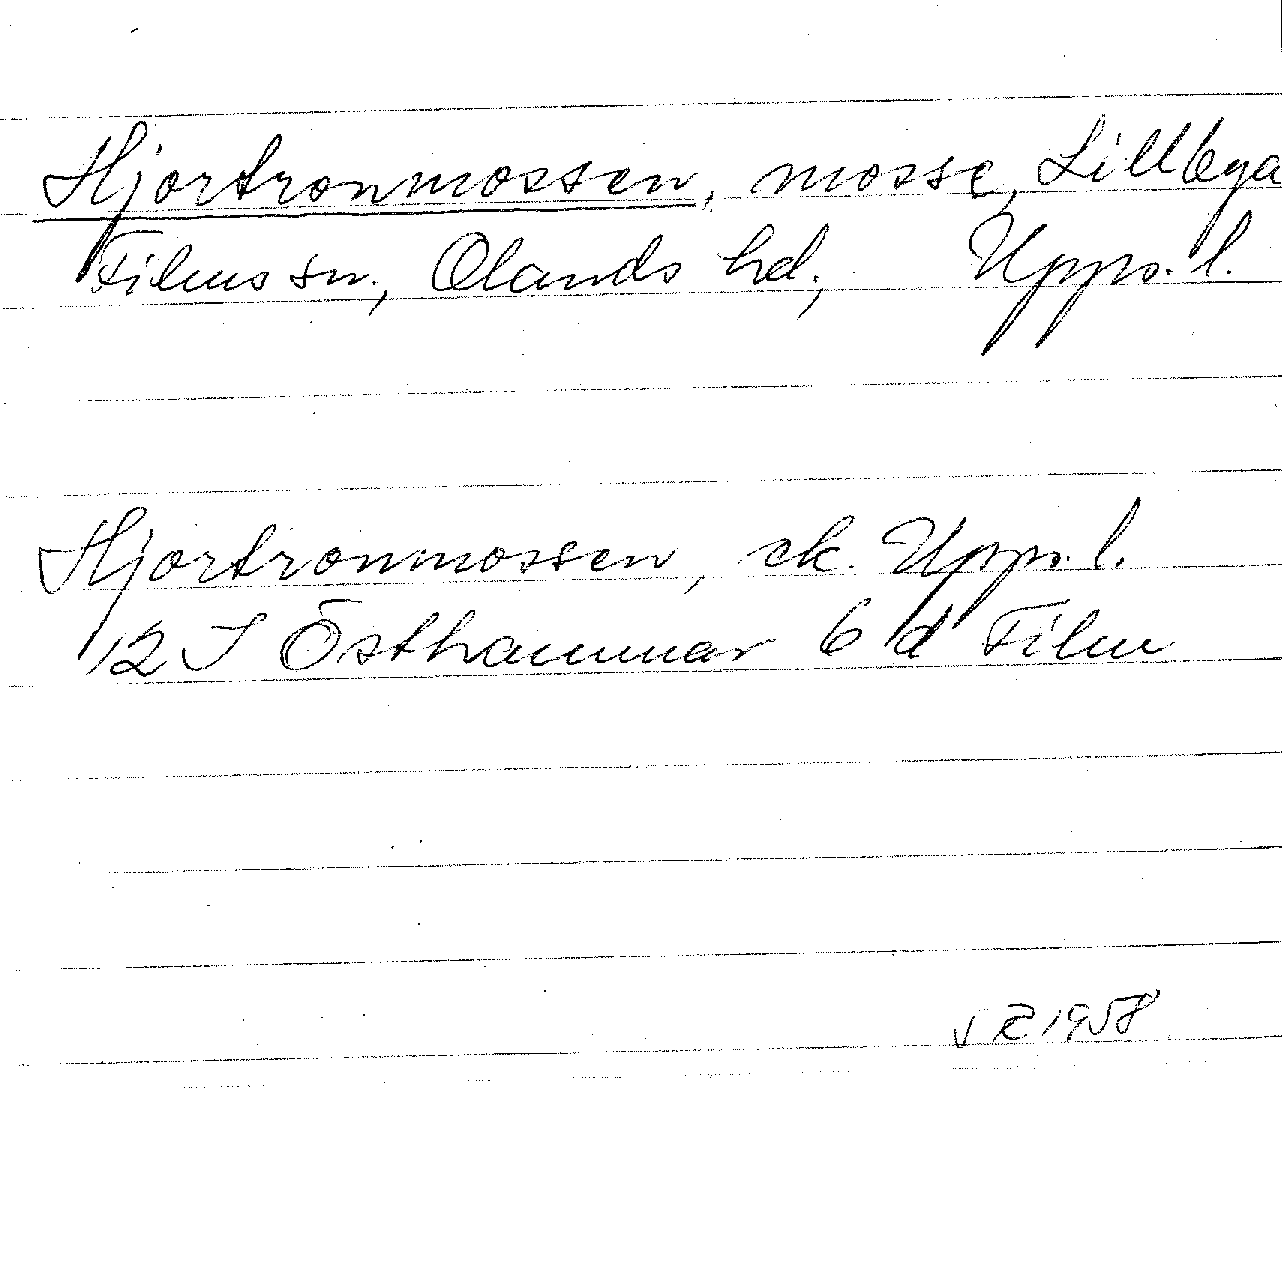 Hjortronmossen, mosse, Lillbyga
Films sn., Olands hd; Upps. l.
Hjortronmossen, ek. Upps. l.
12 I Östhammar 6 d Film
1958